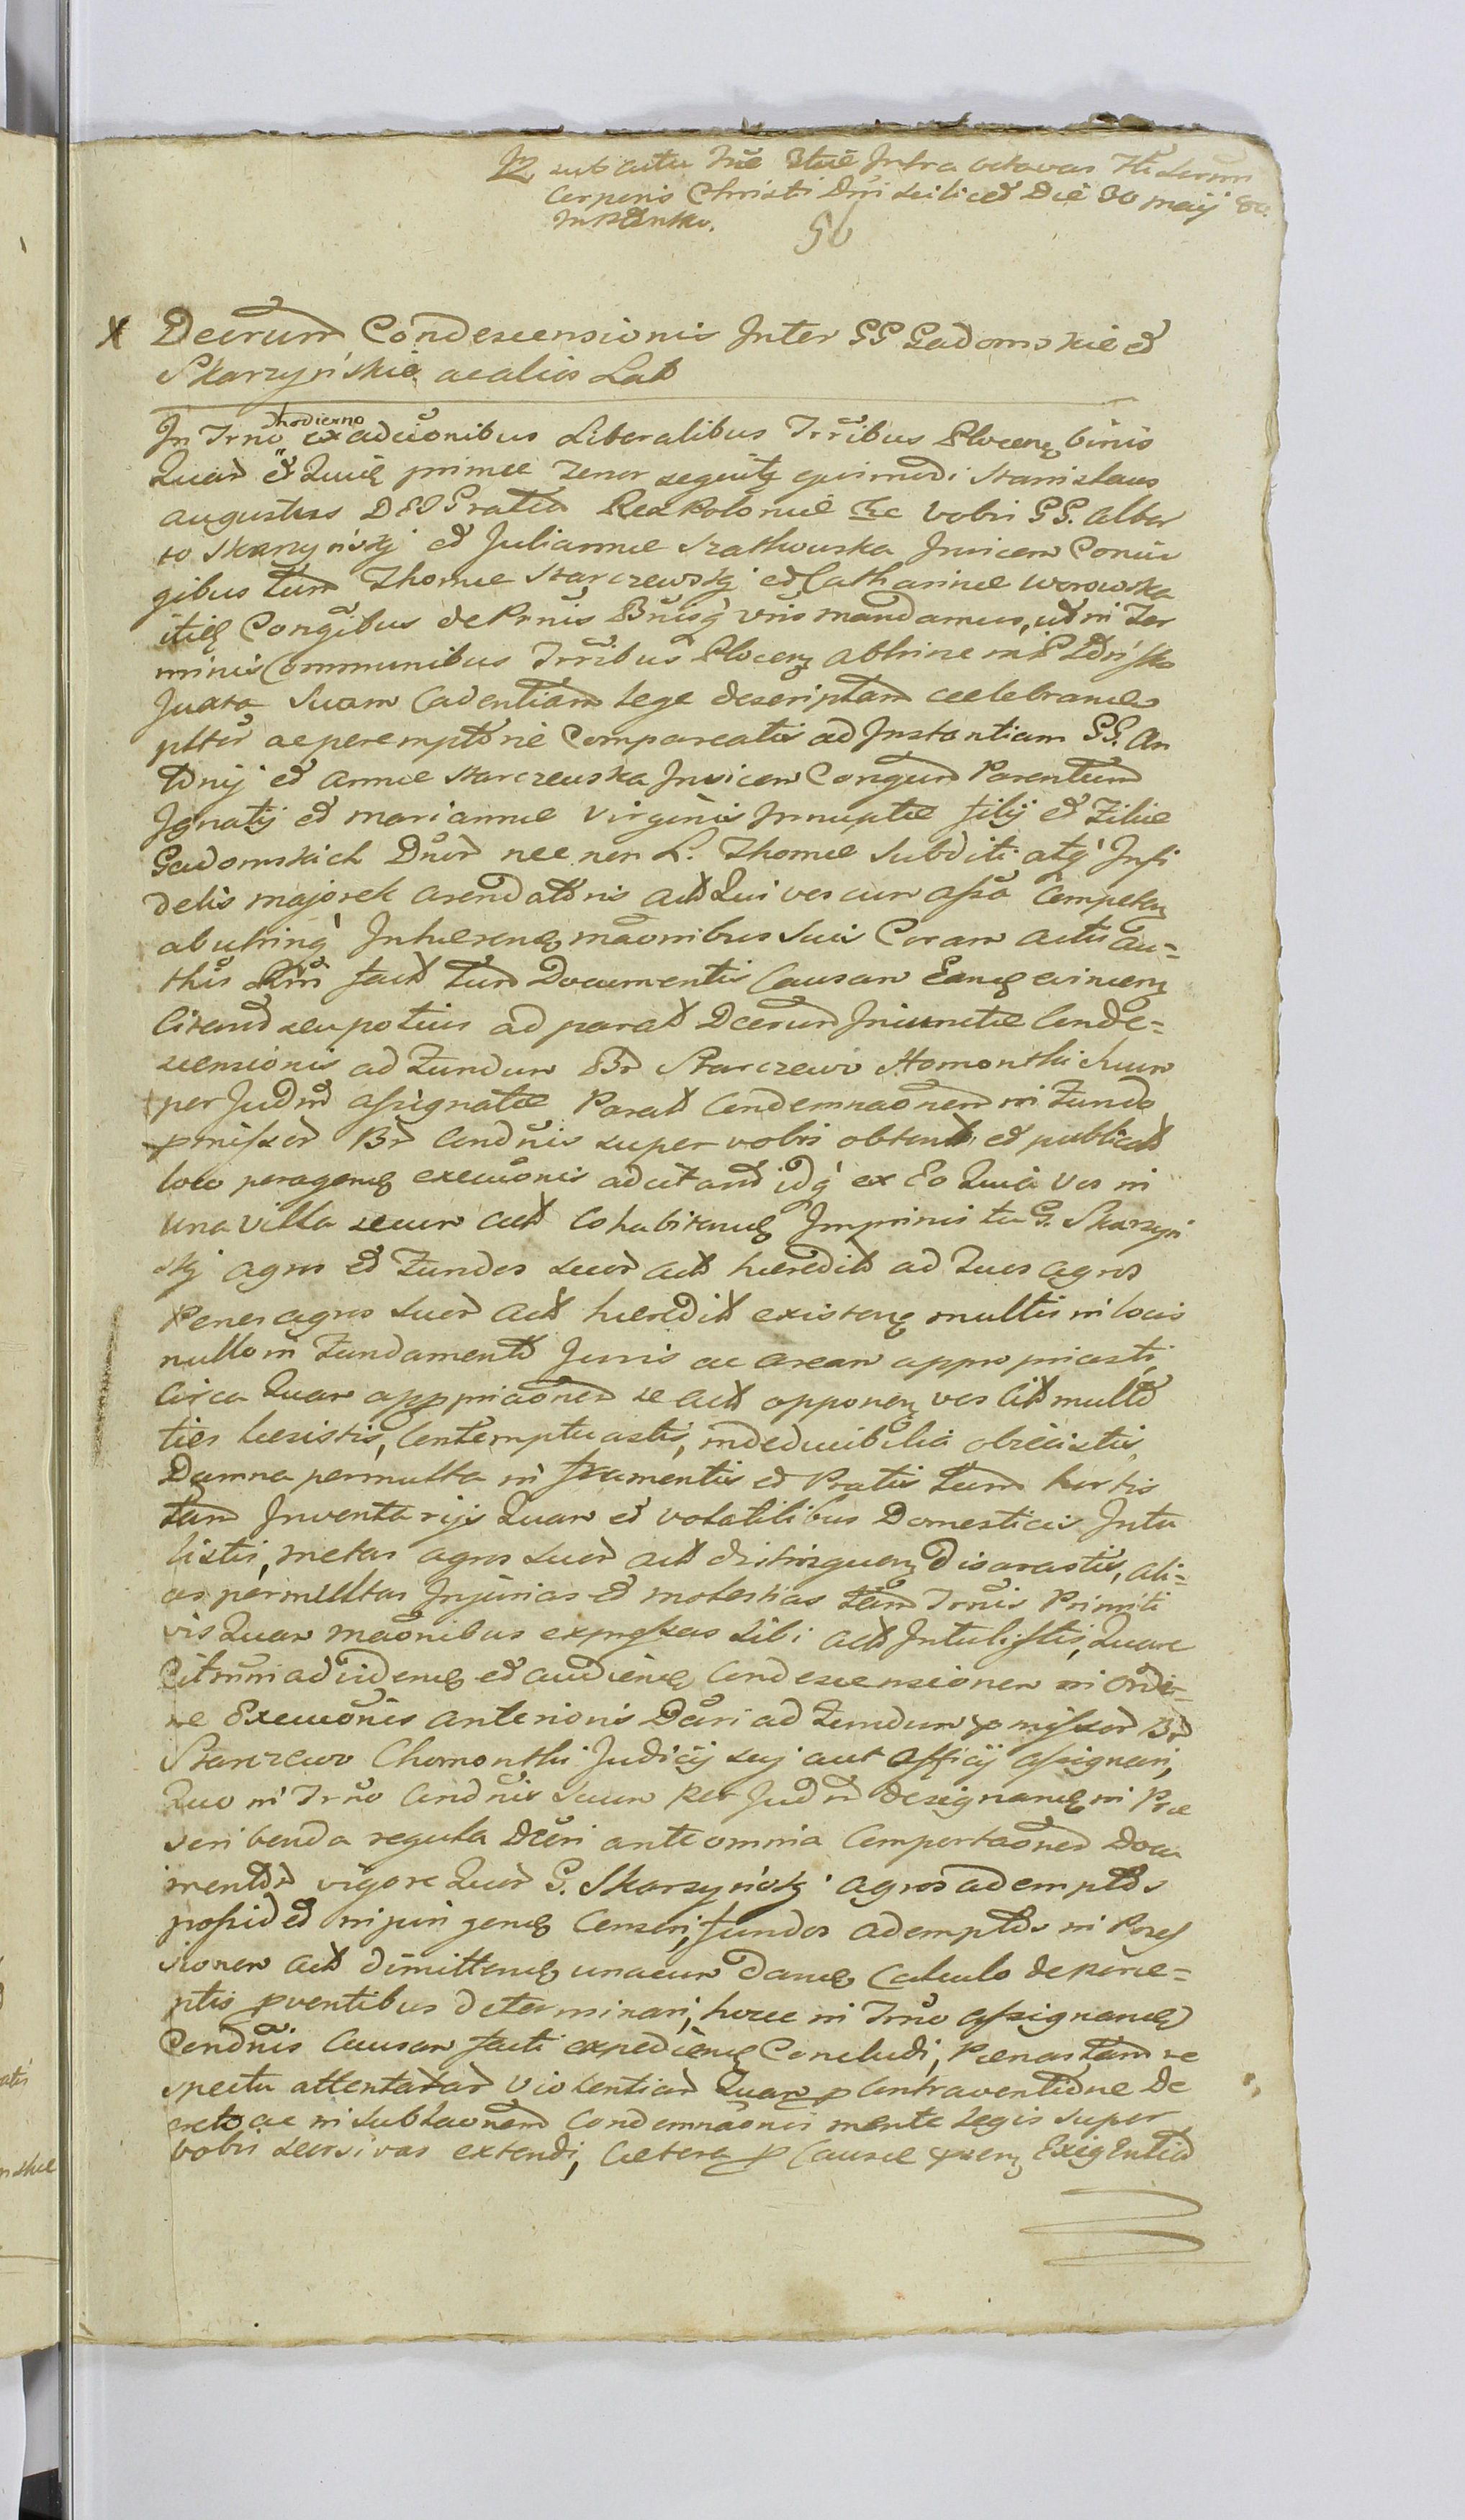 sub actu Fræ 3tiæ Intra octavas
Corporis Christi Dni scilicet Die 30 maij
50
X Decrum Condescensionis Inter GG Gadomskie et
Skarzyńskie ac alios Lat
In Trno hodierno ex adcõnibus Liberalibus Trribus Plocen binis
Quar et Quiq primæ Tenor sequitr ejusmodi Stanislaus
Augustus DEI Gratia Rex Poloniæ &c vobis GG. Alber
to Skarzyński et Juliannæ Szathowska Invicem Coniu
gibus tum Thomæ Starczewskj et Catharinæ Worowska
itid Congibus de Prnis Bnisq vris mandamus, ut in Ter
minis Communibus Trribus Plocen abhinc in
Juxta Suam Cadentiam Lege descriptam celebrand
pltr ac peremptorie Compareatis ad Instantiam GG. An
tonij et Annæ Starczewska Invicem Congum Parentum
Ignatij et Mariannæ Virginis Innuptæ filij et Filiæ
Gadomskich Dnor nec non L. Thomæ Subditi atq Infi
delis majorek arendatoris act Qui vos cum assa Competen
ab utrinq Inhæren maonibus Suis Coram actis au=
this fact tum Documentis Causam Eand evincen
Citand seu potius ad parat Dcerum Iniunctæ Conde=
scensionis ad Fundum Br Starczewo Homonthi Suum
per Judm assignatæ Parat Condemnaonem in Fundo
pmissor Br Condnis super vobis obtent et publicat
loco peragend execuonis adcitand idq ex Eo Quia vos in
una villa secum act Cohabitand Imprimis tu G. Skarzyń
skj agros et Fundos suos act hæredit ad suos agros
Penes agros suos act hæredit existen multis in locis
nullo in Fundamento Juris ac aream appropriasti,
Circa Quam apppriaonem se act opponen vos act multo
ties læsistis, Contemptuastis, indeducibilia obiecistis
Damna permulta in frumentis et Pratis tum hortis
tam Inventarijs Quam et volatilibus Domesticis Intu
listis, metas agros suos act distinguen disarastis, ali=
as permultas Injurias et molestias tam Trnis Primiti
vis Quam maonibus expressas Sibi act Intulistis, Quare
Citmini ad vidend et audiend Condescensionem in Ordi=
ne Execuonis anterioris Dcri ad Fundum pmissor Br
Starczewo Chomonthi Judicij suj aut Officij assignari,
Quo in Trno Condnis Suum per Judm designand in Præ
scribenda regula Dcri ante omnia Comportaonem Docu
mentor vigore Quor G. Skarzyńskj agros ademptos
possidet injungend Censeri, fundos ademptos in Posses
sionem act dimittend unacum dand Calculo de perce=
ptis pventibus determinari, hocce in Trno assignand
Condnis Causam facti expediend Concludi, Pænas tam re
spectu attentatar violentiar Quam p Contraventione De
creto ac in sublaonem Condemnaonis mente Legis super
vobis Cursivas extendi, Cætera p Causæ psen Exigentia